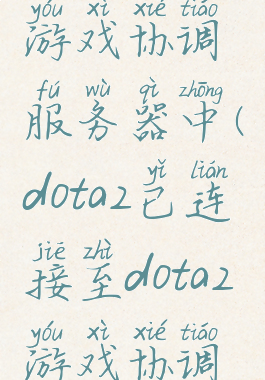 yóu xì xié tiáo
游戏协调
fú wù qì zhōng
服务器中(
yǐ lián
dota2已连
jiē zhì
接至dota2
yóu xì xié tiáo
游戏协调